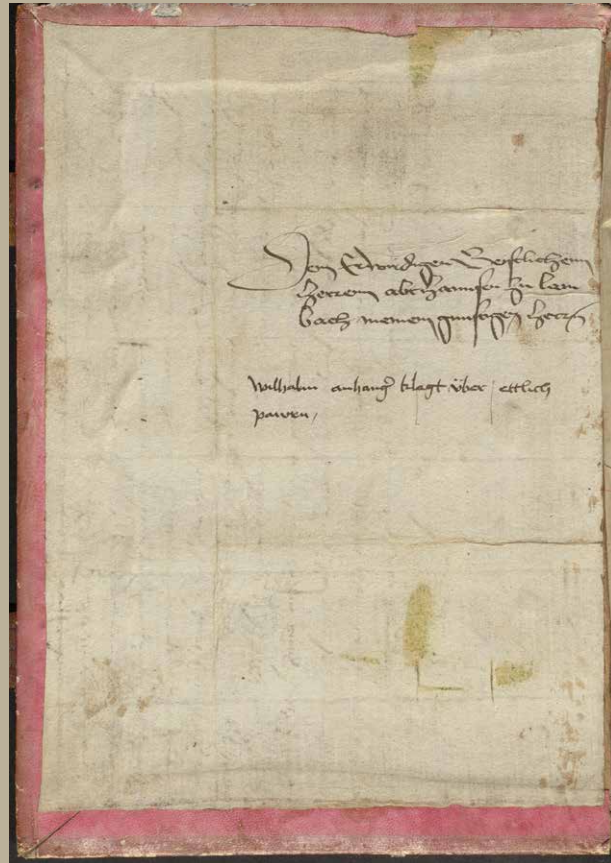 Dem Erwirdigen Geistlichenn
herrem abt hannsen zu lam
bach meinem gunstigen herrn
wilhalm anhang̉ klagt vber / ettlich
pawrn /